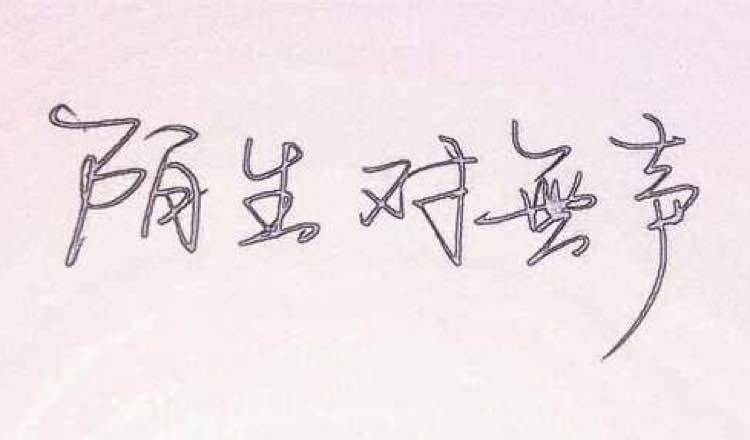 陌生对無声